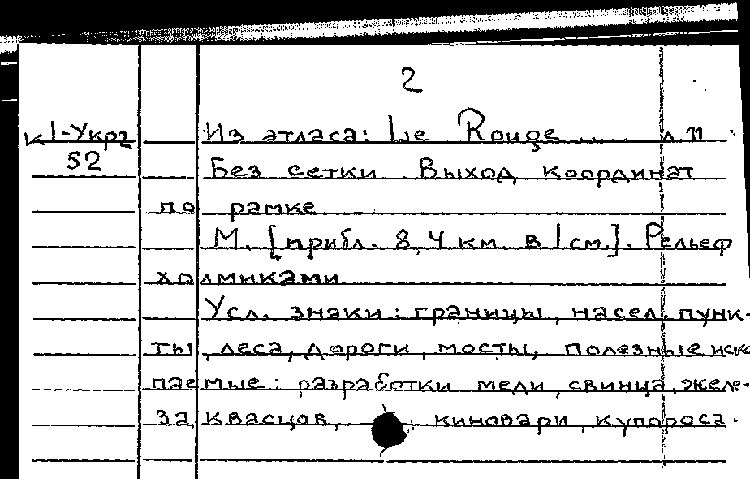 2
К1-Укр2 Из атласа: Le Rouge... л. 11
52 Без сетки. Выход координат
по рамке
М. [прибл. 8,4 км. в 1 см.]. Рельеф
холмиками
Усл. знаки: границы, насел. пунк-
ты, леса, дороги, мосты, полезные иско
паемые: разработки меди, свинца, желе-
за, квасцов, киновари, купороса.